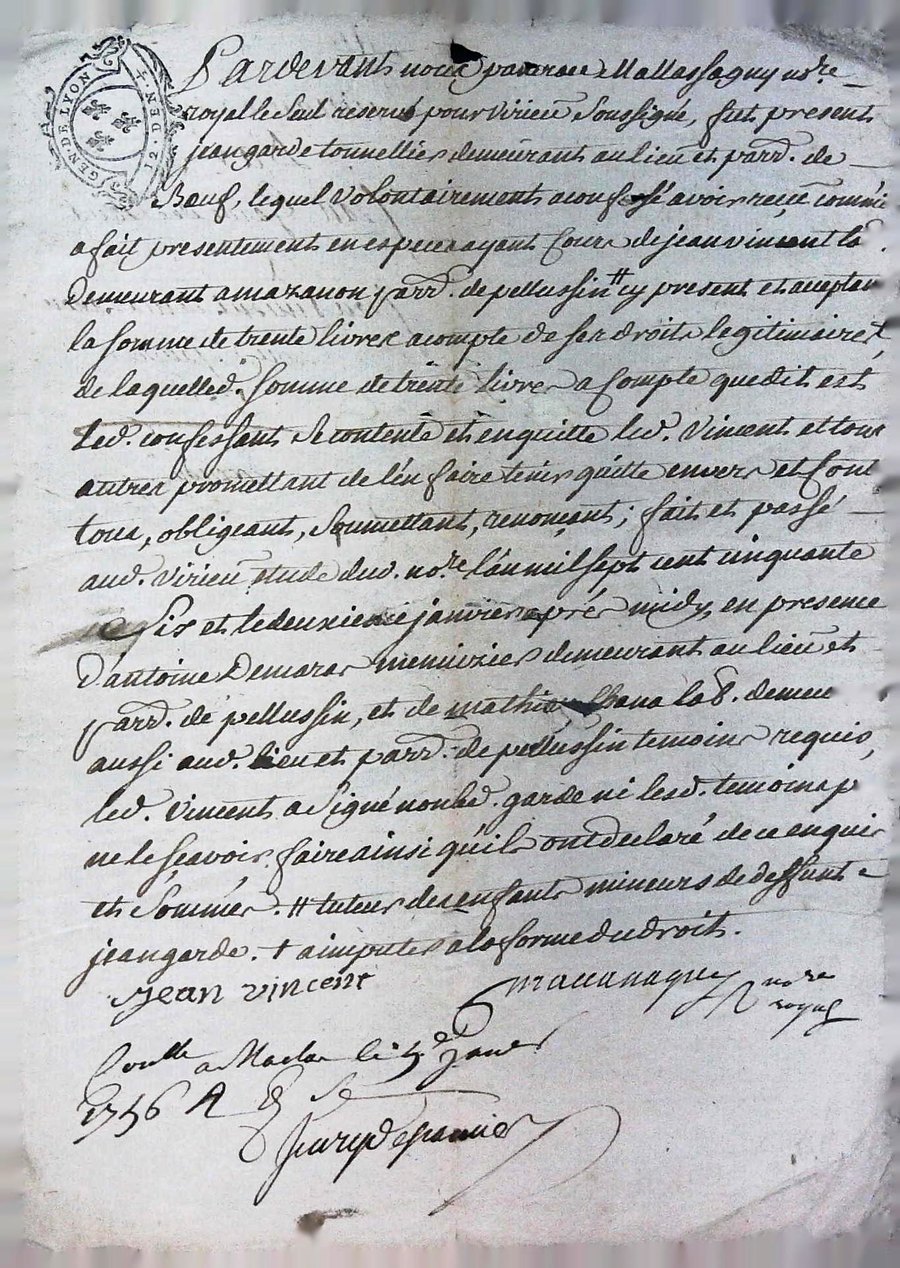 GEN DE LYON
2. DEN.
Pardevant nous Mallassagny no.re
royal le Seul reservé pour Virieu Soussigné, fut present
jean garde tonnellier demeurant au lieu et parr. de
Bœuf, lequel volontairement a confessé avoir reçeu comme
a fait presentement en especes ayant Cours de jean vincent
demeurant a mazanon parr. de pellussin # cy present et accep
la somme de trente livres acompte de ses droits legitimaires +
de laquelle d. somme de trente livres a Compte que dit est
led. confessant se contente et en quitte led. Vincent et tous
autres promettant de l'en faire tenir quitte envers et Cont
tous, obligeant, soumettant, renonçant; fait et passé
aud. Virieu etude dud. no.re l'an mil sept cent cinquante
Six et le deuxieme janvier aprés midy en presence
d'antoine Demaras menuizier demeurant au lieu et
parr. de pellussin, et de mathieu lab. demeu
aussi aud. lieu et parr. de pellussin temoins requis,
led. Vincent a Signé non led. garde ni lesd. temoins p
ne le sçavoir faire ainsi qu'ils ont declaré de ce enquis
et Sommés. # tuteur des enfants mineurs de deffunt
jean garde. + a imputer a la forme du droit.
jean vincent
no.re
royal
Con.lle a Maclas le 5.e Janvier
1756